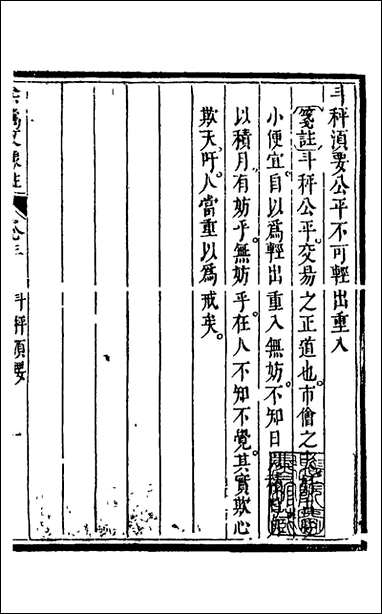 斗秤湏要公平不可輕出重入
箋註斗秤公平交易之正道也。市儈之
小便宜自以爲輕出重入無妨。不知日
以積月有妨乎。無妨乎。在人不知不覺。其實欺心
欺天。吁。人當重以爲戒矣。
文像註 卷三 斗秤須要 一